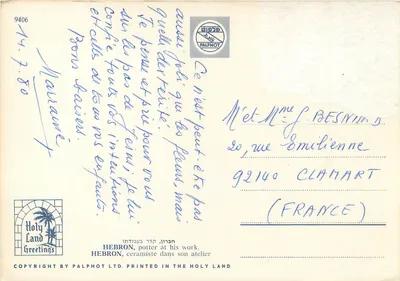 9406
14. 7. 80
פלפוט
PALPHOT
Ce n'est peut-être pas
aussi joli que les fleurs, mais
quelle dextérité.
Je pense et prie pour vous
sur les pas de Jésus, je lui
confie toutes vos intentions
et celles de tous vos enfants.
Bons baisers.
Marraine
M et Mme J BESNI
20, rue Emilienne
92140 CLAMART
(FRANCE)
Holy
Land
Greetings
חברון, קדר בעבודתו
HEBRON, potter at his work.
HEBRON, ceramiste dans son atelier
COPYRIGHT BY PALPHOT LTD. PRINTED IN THE HOLY LAND